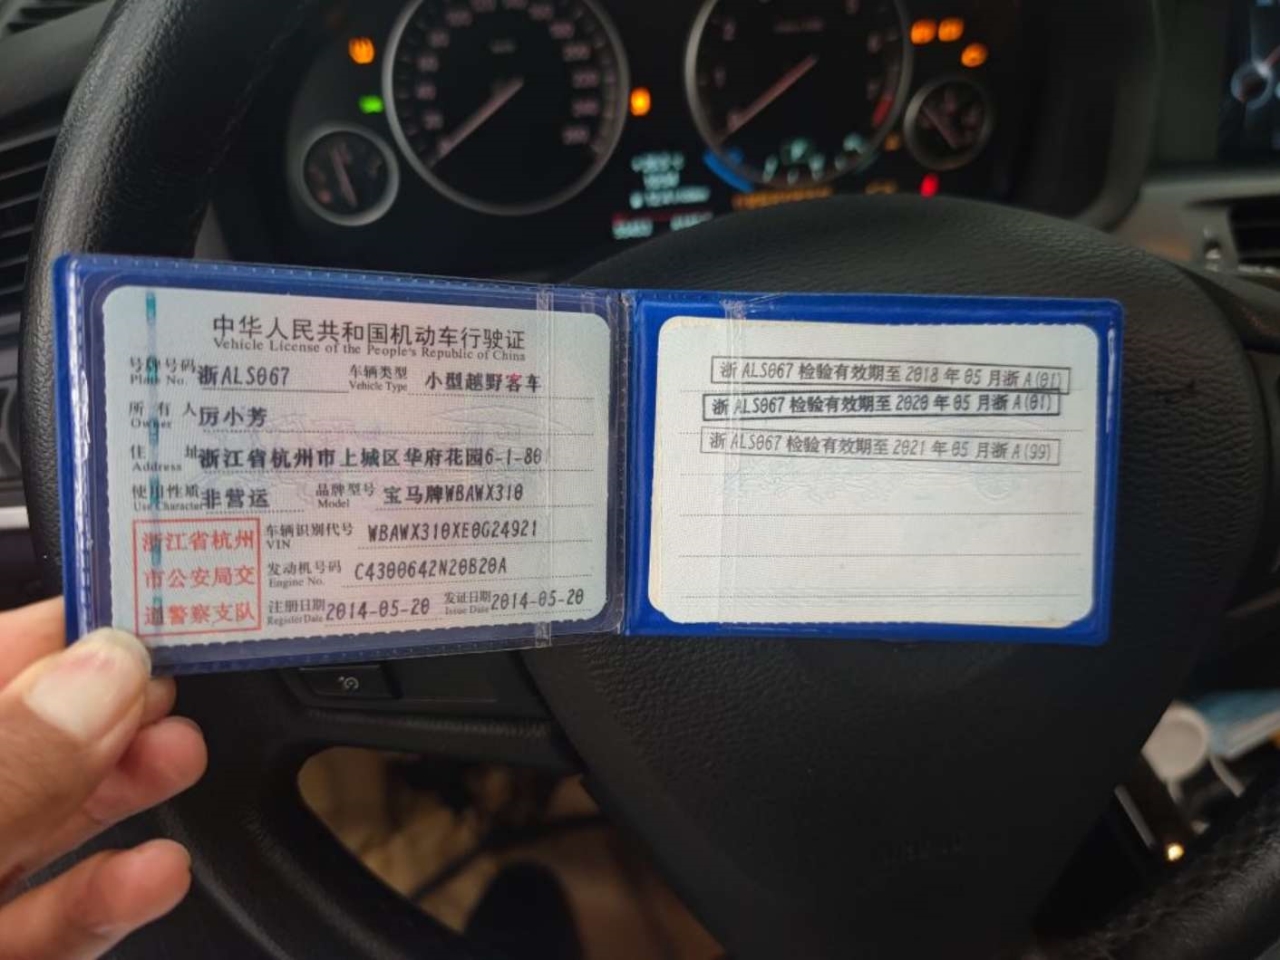 中华人民共和国机动车行驶证
Vehicle License of the People's Republic of China
号牌号码 浙ALS067 车辆类型 小型越野客车
Plate No. Vehicle Type
所有人 厉小芳
Owner
住址 浙江省杭州市上城区华府花园6-1-801
Address
使用性质 非营运 品牌型号 宝马牌WBAWX310
Use Character Model
浙江省杭州
市公安局交
通警察支队
车辆识别代号 WBAWX310XE0G24921
VIN
发动机号码 C4300642N20B20A
Engine No.
注册日期 2014-05-20 发证日期 2014-05-20
Register Date Issue Date
浙ALS067检验有效期至2018年05月浙A(01)
浙ALS067检验有效期至2020年05月浙A(01)
浙ALS067检验有效期至2021年05月浙A(99)